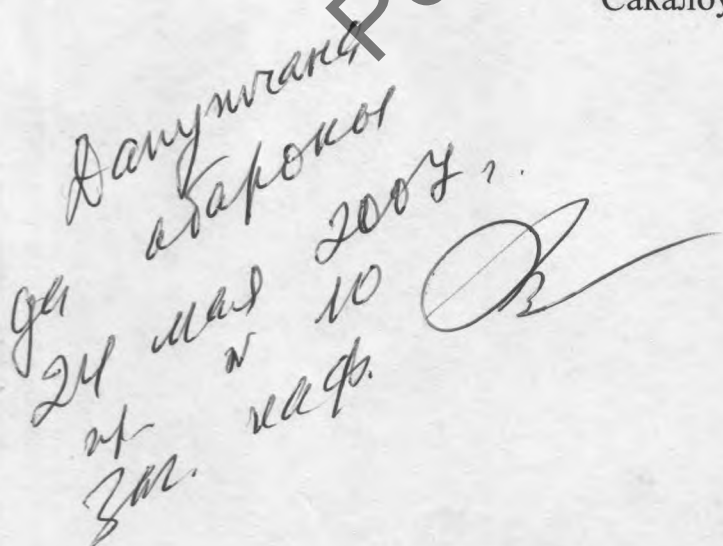 Сакалоў
Дапушчана
да абароны
24 мая 2007 г.
пр № 10
Заг. каф.